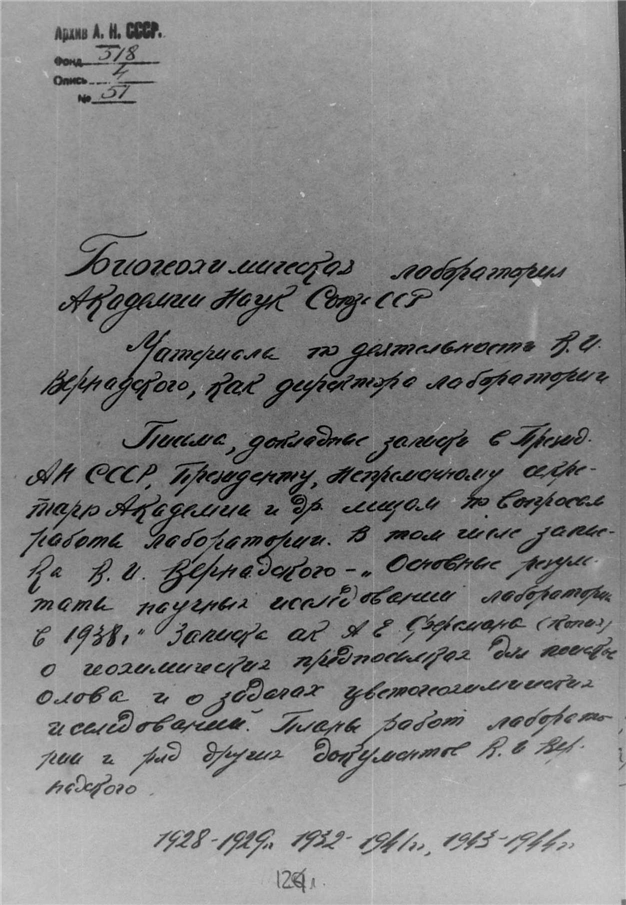 Архив А. Н. СССР.
Фонд 518
Опись 4
№ 51
Биогеохимическая лаборатория
Академии Наук Союза ССР
Материалы по деятельности В. И.
Вернадского, как директора лаборатории
Письма, докладные записки в Презид.
АН СССР, Президенту, Непременному секре-
тарю Академии и др. лицам по вопросам
работы лаборатории. В том числе запис-
ка В. И. Вернадского - „Основные резуль-
таты научных исследований лаборатории
в 1938г." Записка ак А Е Ферсмана (копия)
о геохимических предпосылках для поисков
олова и о задачах исследований. Планы работ лаборато-
рии и ряд других документов В. И Вер-
надского.
1928-1929г. 1932-1941гг, 1943-1944гг
л.